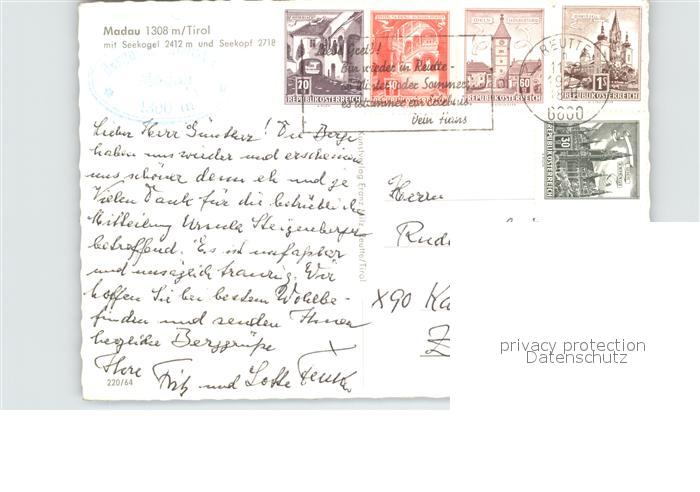 Madau 1308 m/Tirol
mit Seekogel 2412 m und Seekopf 2718
20
REPUBLIK ÖSTERREICH
REPUBLIK ÖSTERREICH
60
REPUBLIK ÖSTERREICH
1S
REPUBLIK ÖSTERREICH
30
REPUBLIK ÖSTERREICH
REUTTE
6600
Liebe Gretl!
Bin wieder in Reutte -
ob Winter oder Sommer,
es ist immer ein Erlebnis
Dein Hans
1300 m
Lieber Herr Günther! Die Berge
haben uns wieder und erscheinen
uns schöner denn eh und je
Vielen Dank für die betrübliche
Mitteilung Ursula Steigenberger
betreffend. Es ist unfassbar
und unsäglich traurig. Wir
hoffen Sie bei bestem Wohlbe-
finden und senden Ihnen
herzliche Berggrüße
Ihre Fritz und Lotte
220/64
Reutte/Tirol
Herrn
X90 Ka
privacy protection
Datenschutz